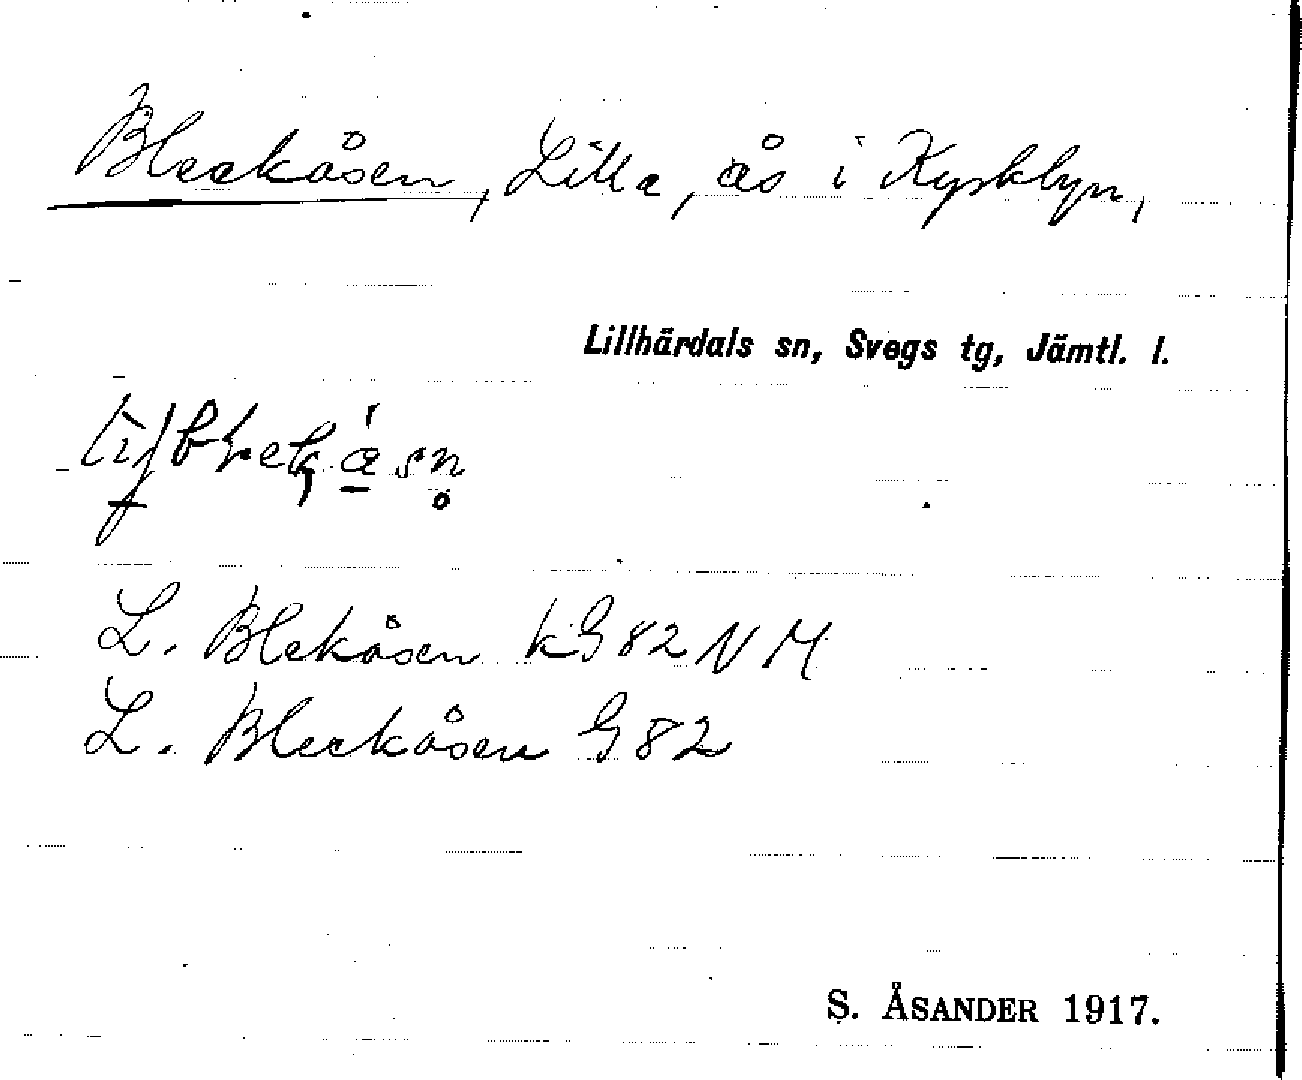 Bleckåsen, Lilla, ås i Kyrkbyn,
Lillhärdals sn, Svegs tg, Jämtl. l.
L. Blekåsen kG 82 N M
L. Bleckåsen G 82
S. ÅSANDER 1917.